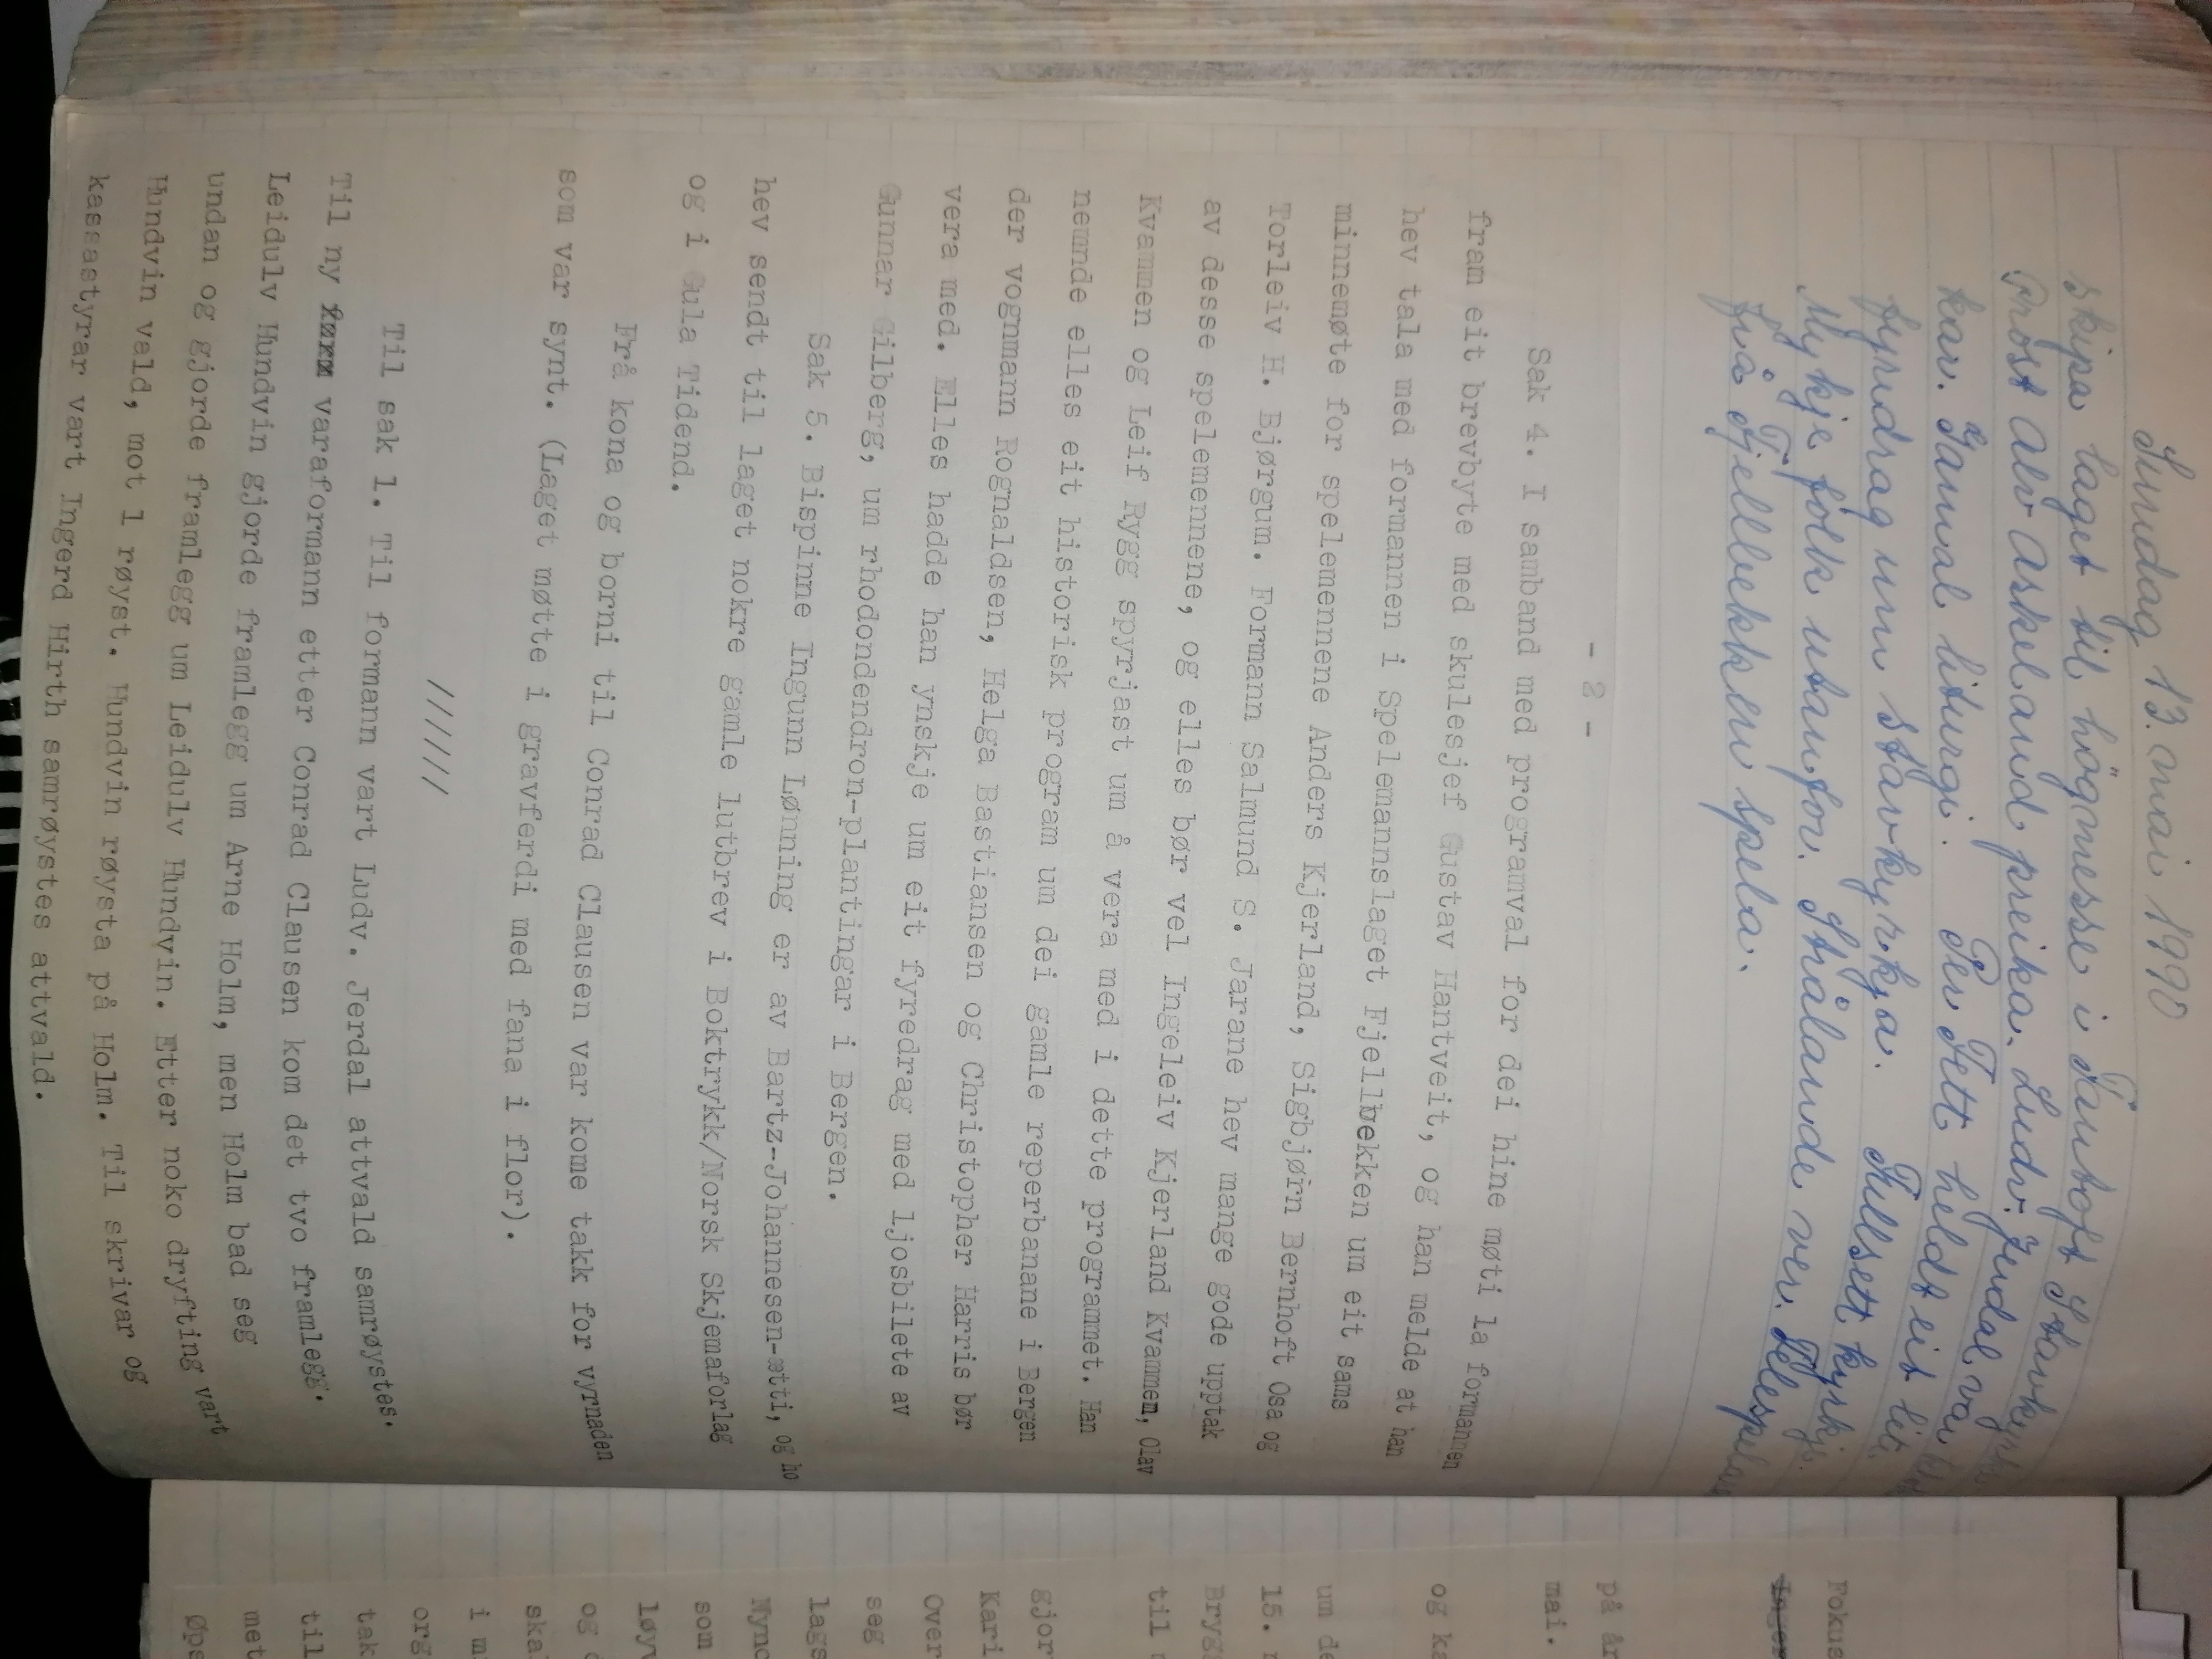 Sundag 13. mai 1990
skipa laget til högmesse i Fantoft Stavkyrkje
Prost Alv Askeland preika. Ludv. Jerdal var
kav. Gamal liturgi. Per Fett heldt eit lite
fyredrag um Stavkyrkja. Fullsett kyrkje.
Mykje folk utanfor. Strålande ver.
frå Fjellbekken spela.
- 2 -
Sak 4. I samband med programval for dei hine møti la formannen
fram eit brevbyte med skulesjef Gustav Hantveit, og han melde at han
hev tala med formannen i Spelemannslaget Fjellbekken um eit sams
minnemøte for spelemennene Anders Kjerland, Sigbjørn Bernhoft Osa og
Torleiv H. Bjørgum. Formann Salmund S. Jarane hev mange gode upptak
av desse spelemennene, og elles bør vel Ingeleiv Kjerland Kvammen, Olav
Kvammen og Leif Rygg spyrjast um å vera med i dette programmet. Han
nemnde elles eit historisk program um dei gamle reperbanane i Bergen
der vognmann Rognaldsen, Helga Bastiansen og Christopher Harris bør
vera med. Elles hadde han ynskje um eit fyredrag med ljosbilete av
Gunnar Gilberg, um rhodondendron-plantingar i Bergen.
Sak 5. Bispinne Ingunn Lønning er av Bartz-Johannesen-ætti, og ho
hev sendt til laget nokre gamle lutbrev i Boktrykk/Norsk Skjemaforlag
og i Gula Tidend.
Frå kona og borni til Conrad Clausen var kome takk for vyrnaden
som var synt. (Laget møtte i gravferdi med fana i flor).
//////
Til sak 1. Til formann vart Ludv. Jerdal attvald samrøystes.
Til ny varaformann etter Conrad Clausen kom det tvo framlegg.
Leidulv Hundvin gjorde framlegg um Arne Holm, men Holm bad seg
undan og gjorde framlegg um Leidulv Hundvin. Etter noko dryfting vart
Hundvin vald, mot 1 røyst. Hundvin røysta på Holm. Til skrivar og
kassastyrar vart Ingerd Hirth samrøystes attvald.
Fokus
på år
mai.
og ka
um de
15.
Bryg
til
gjor
Kari
Over
seg
lags
Nyno
som
løyv
og
ska
i m
org
tak
til
met
Øps